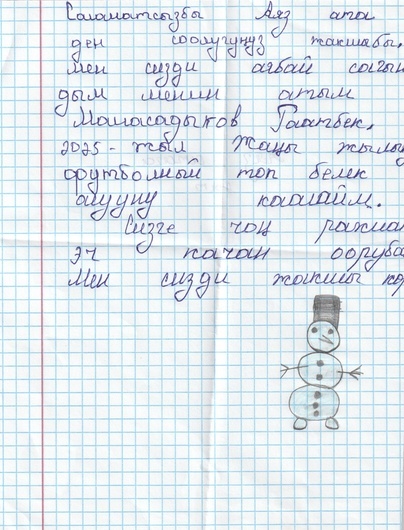 Саламатсызбы Аяз ата
ден соолугуңуз жакшабы.
мен сизди аябай сагын
дым менин атым
Мамасадыков Гаатбек.
2025-жыл Жаңы жылы
футболный топ белек
алууну каалайм.
Сизге чоң рахма
эч качан ооруба
Мен сизди жакшы кө